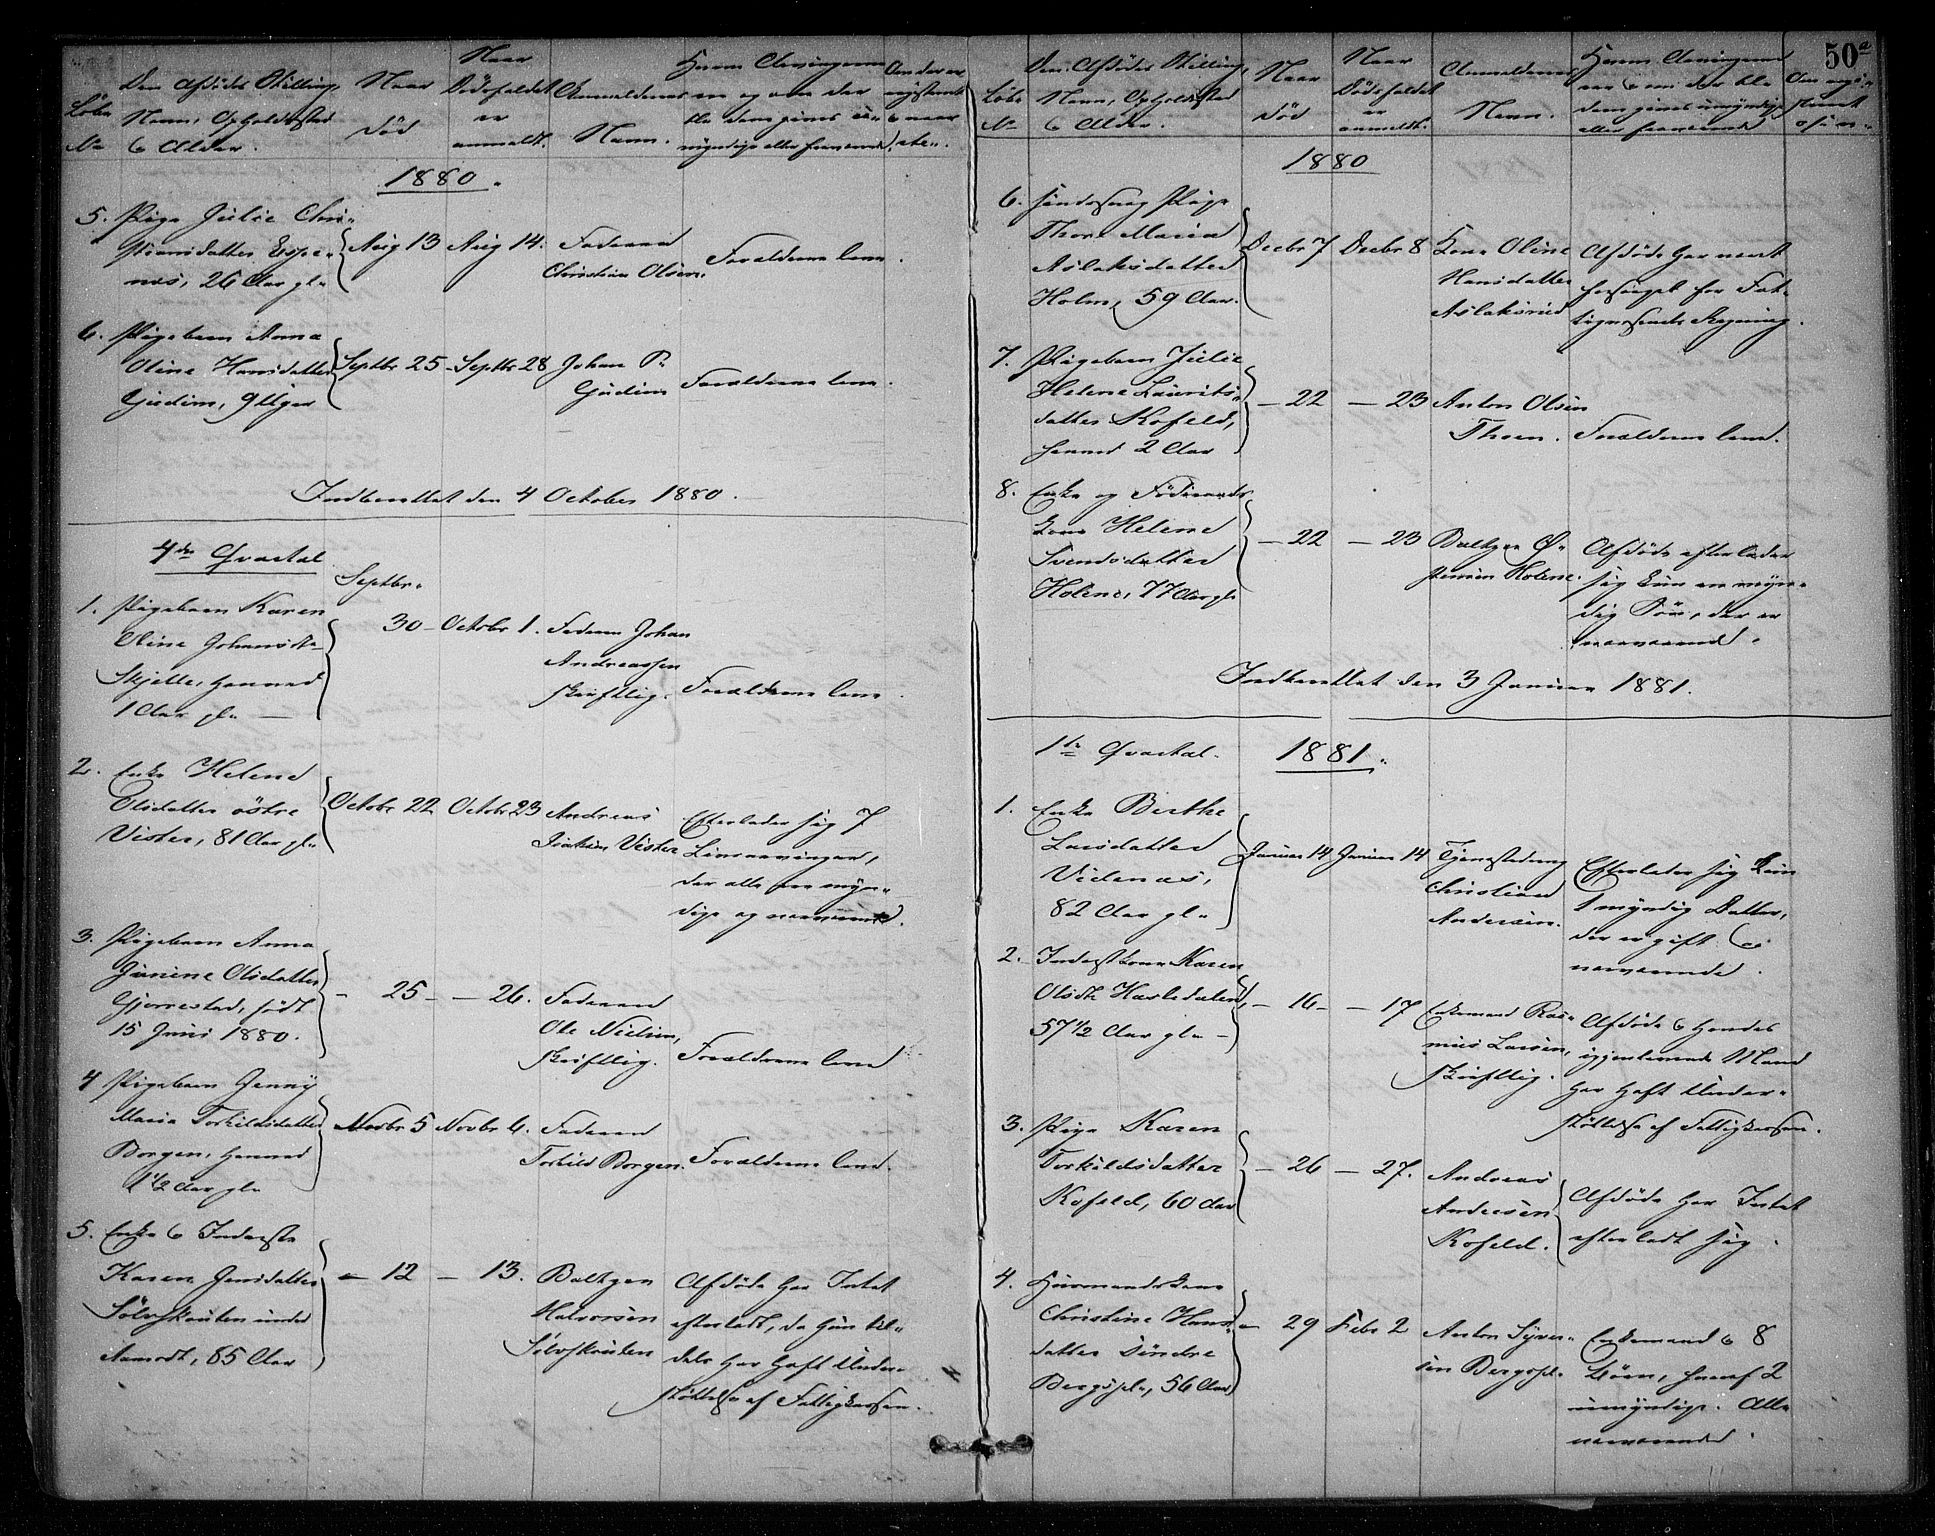 50a
Løbe No
Den Afdødes Stilling,
Navn, Opholdssted
& Alder.
Naar
død
Naar
Dødsfaldet
er
anmeldt.
Anmelderens
Navn.
1880.
5. Pige Julie Chri-
stiansdatter Espe-
næs, 26 Aar gl.
Aug 13
Aug 14.
Faderen
Christian Olsen.
Forældrene leve.
6. Pigebarn Anna
Oline Hansdatter
Gudim, 9 Uger
Septbr 25
Septbr 28
Johan P.
Gudim
Forældrene leve.
Indberettet den 4 October 1880.
4de Qvartal
Septbr.
1. Pigebarn Karen
Oline Johansdtr
Skjelle, henved
1 Aar gl.
30
Octobr 1.
Faderen Johan
Andreassen
skriftlig.
Forældrene leve.
2. Enke Helene
Olsdatter østre
Vister, 81 Aar gl.
Octobr 22
Octobr 23
Andreas
Vister
Efterlader sig 7
Livsarvinger,
der alle ere myn-
dige og nærværende.
3. Pigebarn Anna
Janine Olsdatter
Gjerrestad, født
15 Juni 1880.
- 25
- 26.
Faderen
Ole Nielsen,
skriftlig.
Forældrene leve
4 Pigebarn Jenny
Maria Torkildsdatter
Borgen, henved
1½ Aar gl.
Novbr 5
Novbr 6.
Faderen
Torkild Borgen.
Forældrene leve.
5. Enke & Inderste
Karen Jensdatter
Sølvskuten under
Aamodt, 85 Aar
- 12
- 13.
Baltzer
Halvorsen
Sølvskuten
Afdøde har Intet
efterladt, da hun til-
dels har havt Under-
støttelse af Fattigkassen.
Løbe
No
Den Afdødes Stilling,
Navn, Opholdssted
& Alder.
Naar
død
Naar
Dødsfaldet
er
anmeldt.
Anmelderens
Navn.
1880
6. Sindssvag Pige
Thore Maria
Aslaksdatter
Holm, 59 Aar.
Decbr 7
Decbr 8
Kone Oline
Hansdatter
Aslaksrud
Afdøde har været
forsørget for Fat-
tigvæsenets Regning.
7. Pigebarn Julie
Helene Laurits-
datter Kofeld,
henved 2 Aar
- 22
- 23
Anton Olsen
Thoen.
Forældrene leve.
8. Enke og Føderaads
kone Helene
Svendsdatter
Holene, 77 Aar gl.
- 22
- 23
Baltzer Ø-
stensen Holene.
Afdøde efterlader
sig kun en myn-
dig Søn, der er
nærværende.
Indberettet den 3 Januar 1881.
1ste Qvartal. 1881.
1. Enke Berthe
Larsdatter
Videnæs,
82 Aar gl.
Januar 14
Januar 14
Christian
Andersen.
Efterlader sig kun
1 myndig Datter,
der er gift &
nærværende.
2. Inderstkone Karen
Olsdtr Hasledalen,
57½ Aar gl.
- 16
- 17
Enkemand Ras-
mus Larsen,
skriftlig.
Afdøde & hendes
igjenlevende Mand
har havt Under-
støttelse af Fattigkassen.
3. Pige Karen
Torkildsdatter
Kofeld, 60 Aar
- 26
- 27.
Andreas
Andersen
Kofeld.
Afdøde har Intet
efterladt sig.
4. Huusmandskone
Christine Hans-
datter søndre
Bergspl., 56 Aar
- 29
Febr 2
Anton Syver-
sen Bergspl.
Enkemand & 8
Børn, hvoraf 2
umyndige. Alle
nærværende.